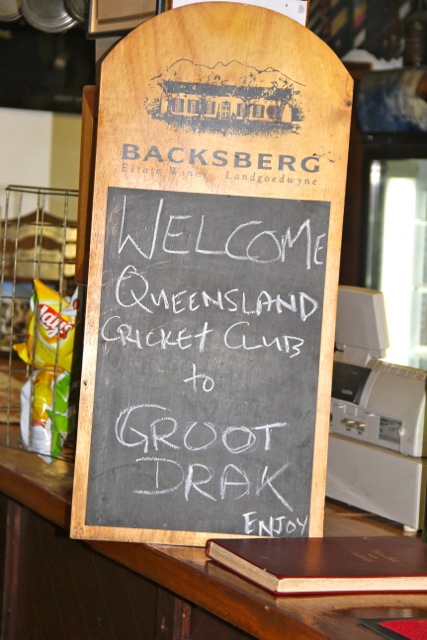 BACKSBERG
Estate Wines Landgoedwyne
WELCOME
QUEENSLAND
CRICKET CLUB
to
GROOT
DRAK
ENJOY
Lay's